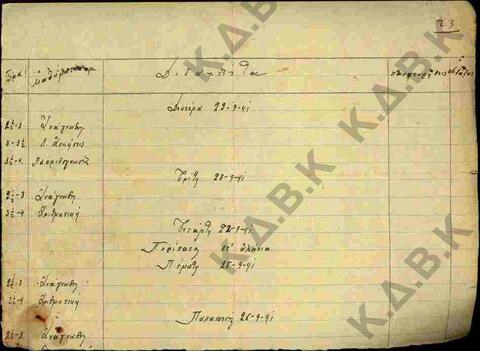 23
Ώρα Μαθήματα Διδαχθέντα
Δευτέρα 22-9-41
2½-3 Ανάγνωση
3-3½
3½-4 Πατριδογνωσία
Τρίτη 23-9-41
2½-3 Ανάγνωση
3½-4 Αριθμητική
Τετάρτη
Περίπατος
Πέμπτη 25-9-41
2½-3 Ανάγνωση
3½-4 Αριθμητική
Παρασκευή 26-9-41
2½-3 Ανάγνωση
Κ.Δ.Β.Κ
Κ.Δ.Β.Κ
Κ.Δ.Β.Κ
Κ.Δ.Β.Κ